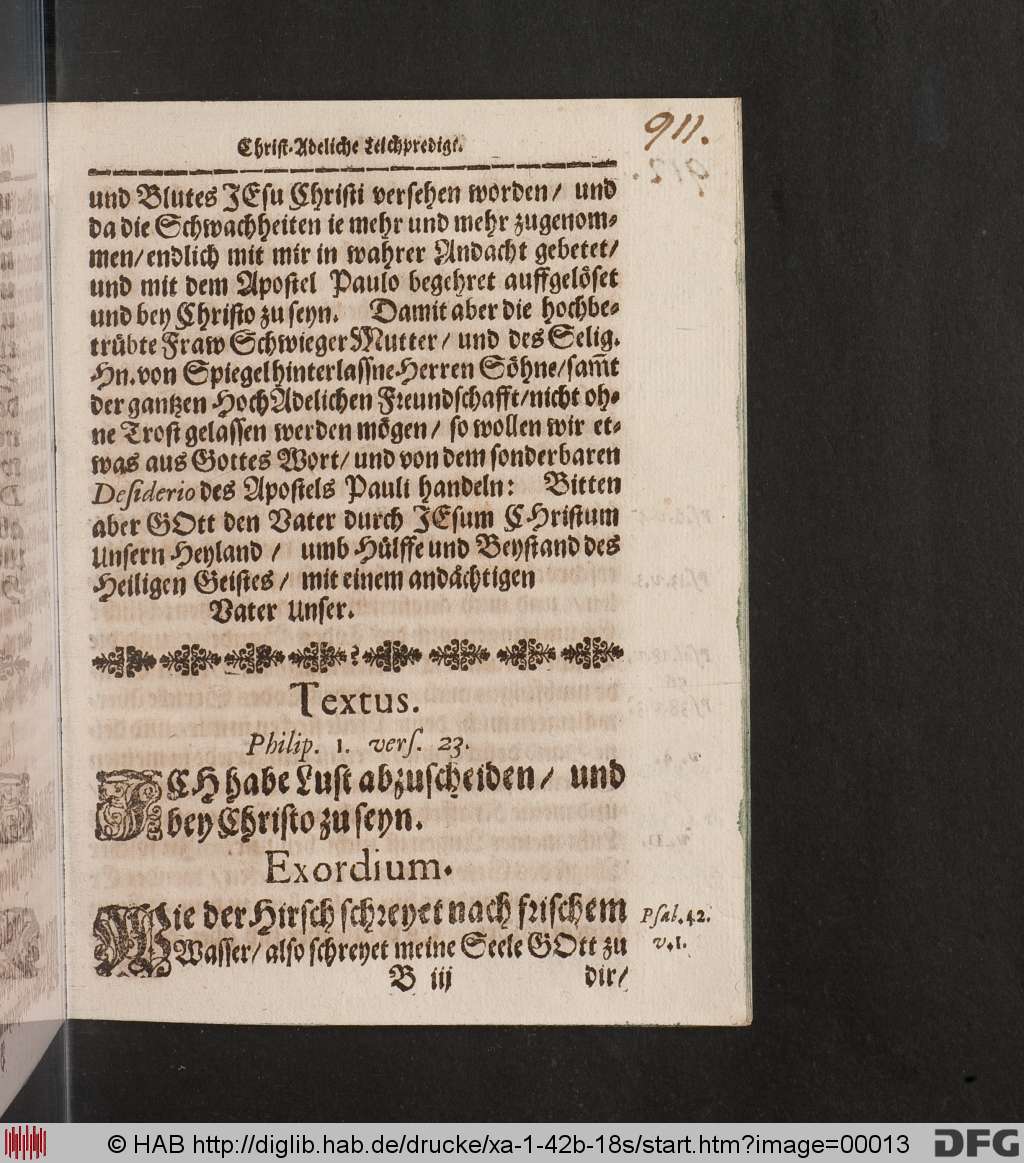 911.
Christ-Adeliche Leichpredigt.
und Blutes JEsu Christi versehen worden/ und
da die Schwachheiten ie mehr und mehr zugenom-
men/ endlich mit mir in wahrer Andacht gebetet/
und mit dem Apostel Paulo begehret auffgelöset
und bey Christo zu seyn. Damit aber die hochbe-
trübte Fraw SchwiegerMutter/ und des Selig.
Hn. von Spiegel hinterlassne Herren Söhne/ sam̃t
der gantzen HochAdelichen Freundschafft/ nicht oh-
ne Trost gelassen werden mögen/ so wollen wir et-
was aus Gottes Wort/ und von dem sonderbaren
Desiderio des Apostels Pauli handeln: Bitten
aber GOtt den Vater durch JEsum CHristum
Unsern Heyland / umb Hülffe und Beystand des
Heiligen Geistes/ mit einem andächtigen
Vater Unser.
Textus.
Philip. 1. vers. 23.
ICH habe Lust abzuscheiden/ und
bey Christo zu seyn.
Exordium.
Wie der Hirsch schreyet nach frischem
Psal. 42.
Wasser/ also schreyet meine Seele GOtt zu
v. 1.
B iij dir/
© HAB http://diglib.hab.de/drucke/xa-1-42b-18s/start.htm?image=00013
DFG